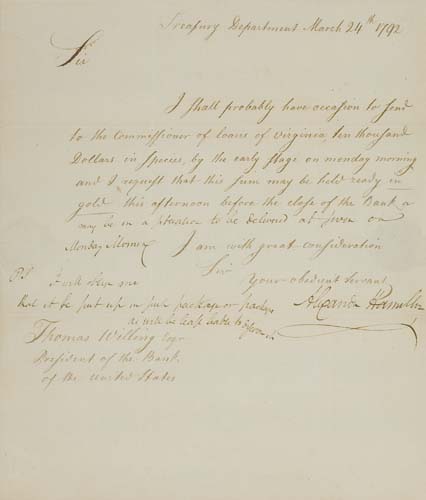 Treasury Department March 24th 1792
Sir
I shall probably have occasion to send
to the Commissioner of loans of Virginia, ten thousand
Dollars in species, by the early stage on monday morning
and I request that this sum may be held ready in
gold this afternoon before the close of the Bank
may be in a situation to be delivered at seven on
Monday Morning
I am with great consideration
Sir
Your obedient Servant
Alexander Hamilton
PS
it will oblige me
that it be put up in such package or packages
as will be least liable to
Thomas Willing Esqr
President of the Bank
of the United States